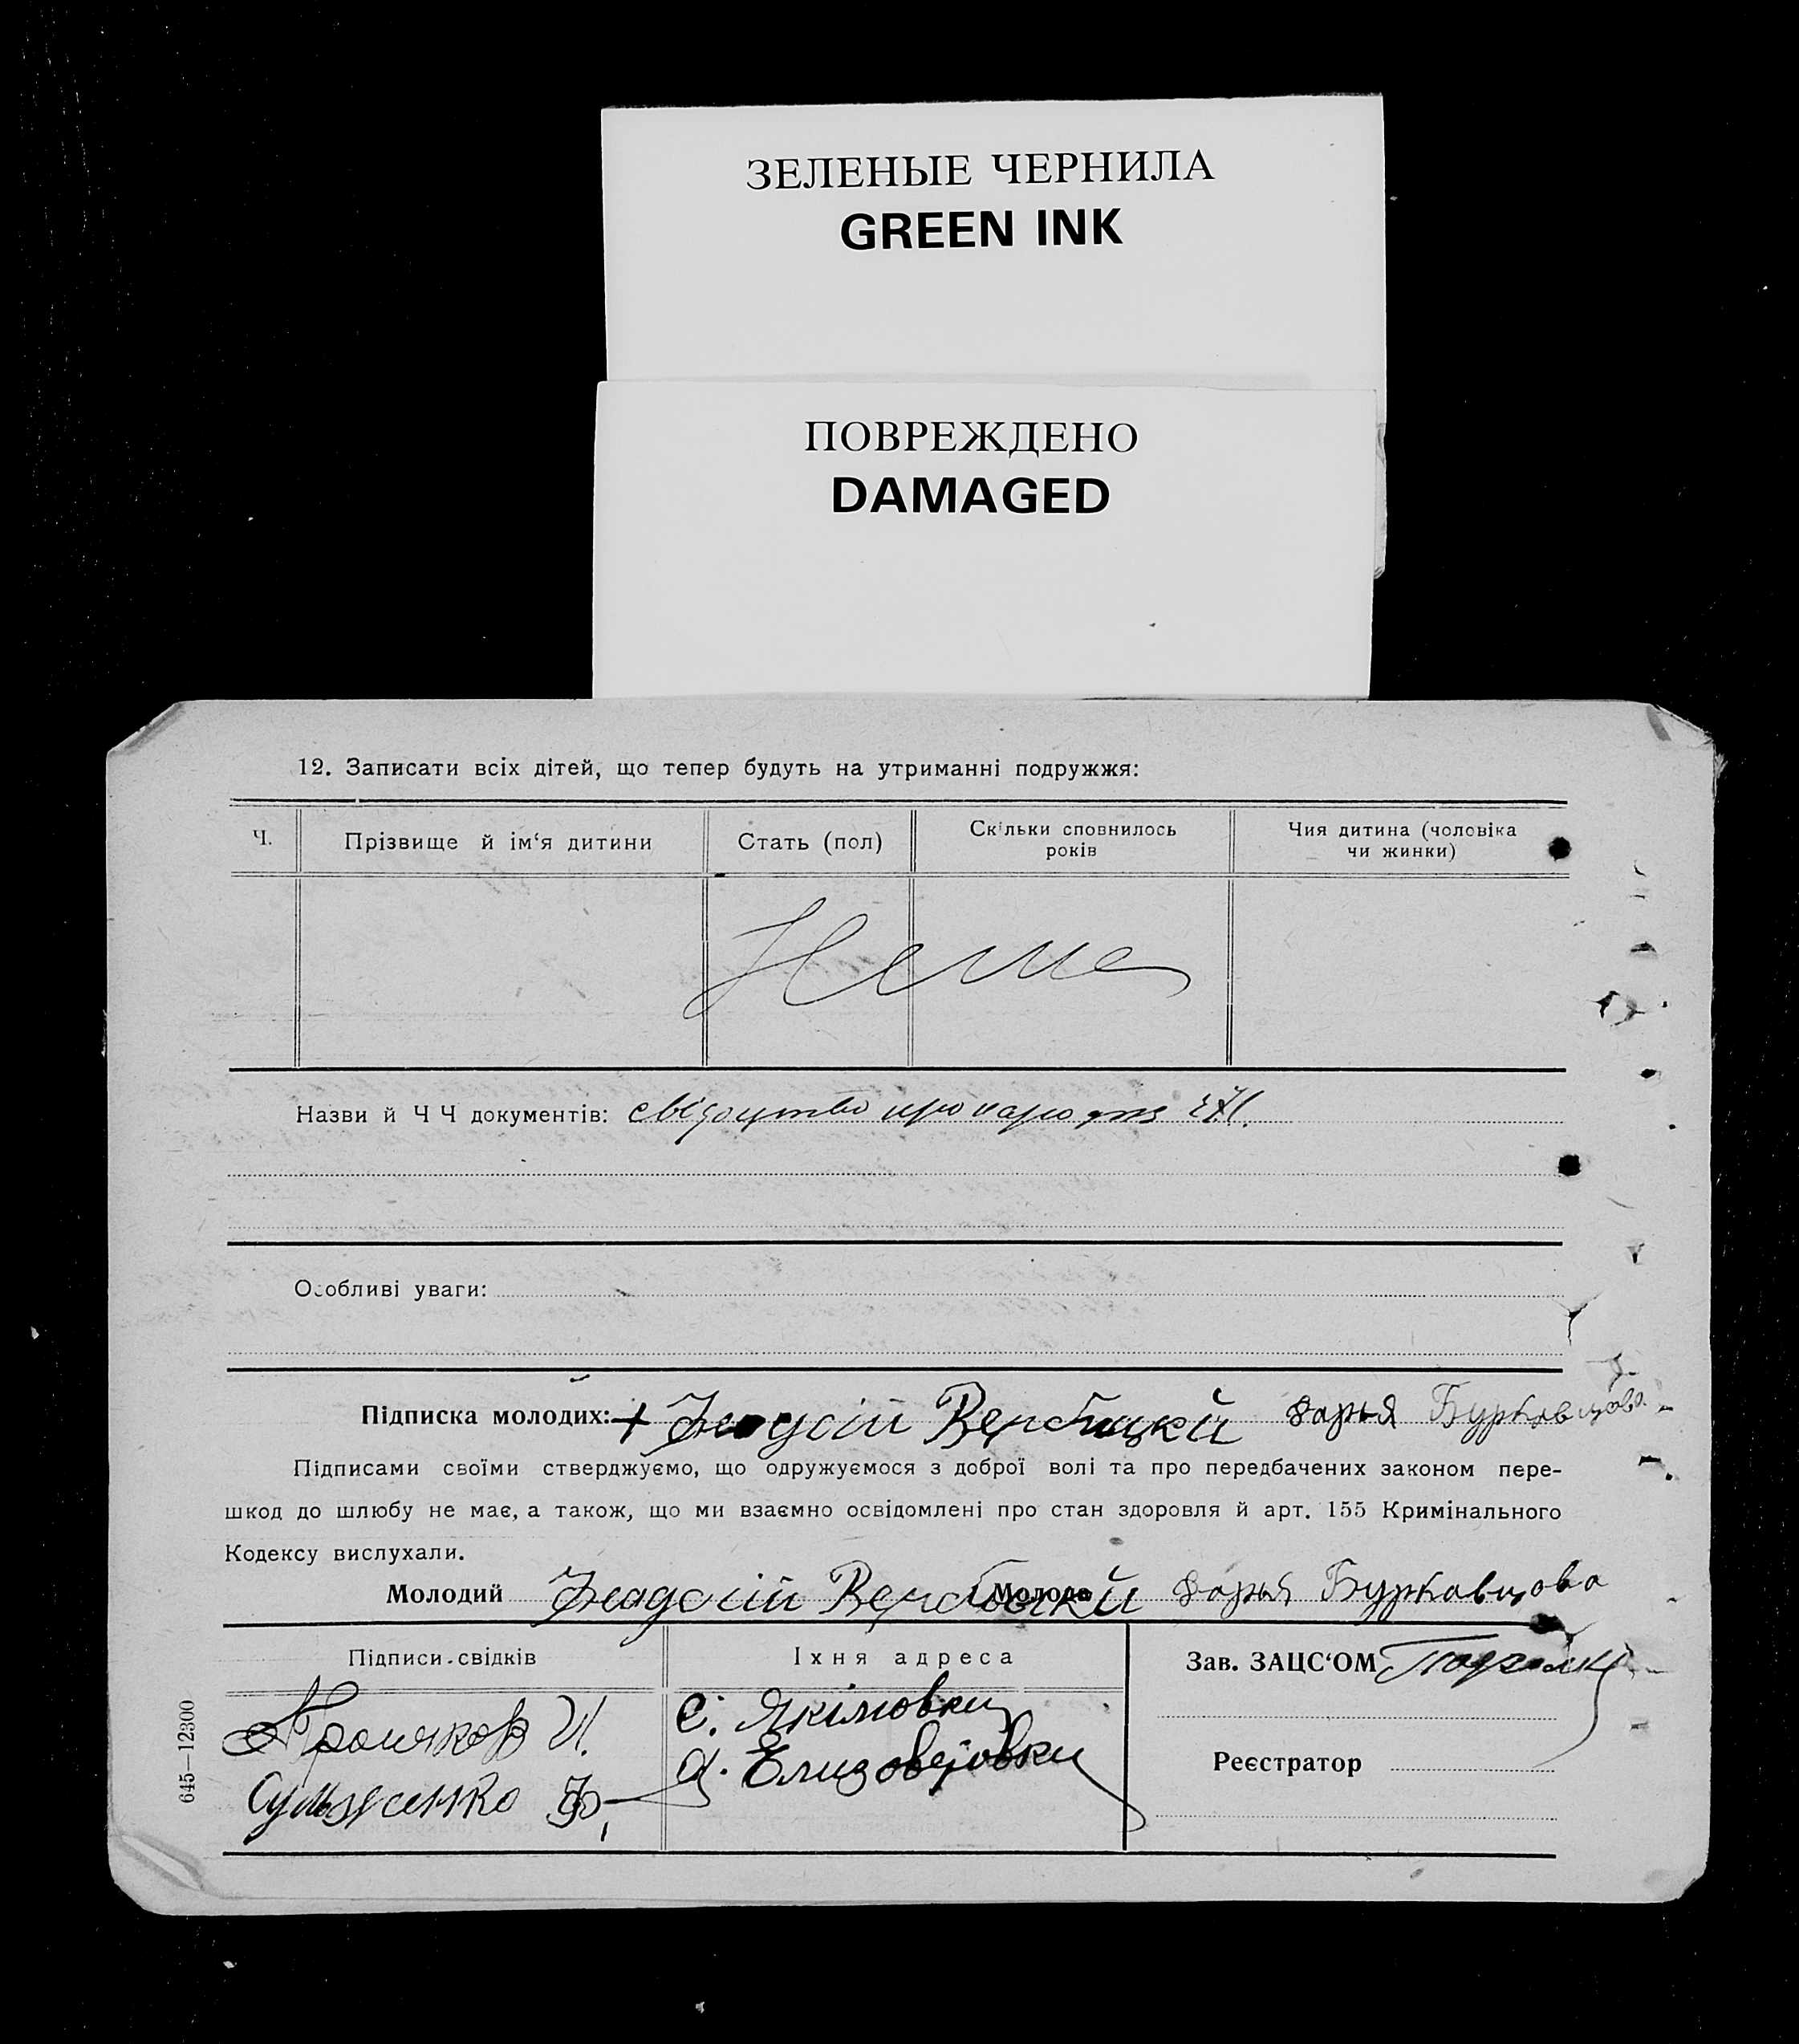 ЗЕЛЕНЫЕ ЧЕРНИЛА
GREEN INK
ПОВРЕЖДЕНО
DAMAGED
12. Записати всіх дітей, що тепер будуть на утриманні подружжя:
Ч. Прізвище й ім‘я дитини Стать (пол) Скільки сповнилось років Чия дитина (чоловіка чи жинки)
Нема
Назви й Ч Ч документів: свідоцтво про
Особливі уваги:
Підписка молодих: + Вербицкй Дарья Бурковцова
Підписами своїми стверджуємо, що одружуємося з доброї волі та про передбачених законом пере-
шкод до шлюбу не має, а також, що ми взаємно освідомлені про стан здоровля й арт. 155 Кримінального
Кодексу вислухали.
Молодий Вербицкй Молода Дарья Бурковцова
Підписи свідків Їхня адреса Зав. ЗАЦС‘ОМ
И. с. Якімовки
Ф. Елизоветовки
Реєстратор
645—12300